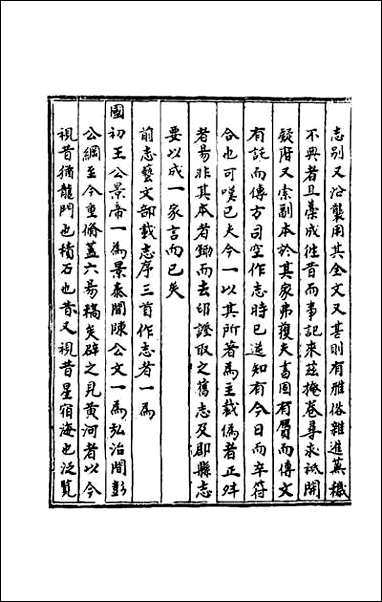 志別又沿襲用其全文又甚則有雅俗雜進薰穢
不興者且藁成徃昔而事記來茲掩卷尋求祇開
疑府又索副本於其家弗獲夫書固有質而傳文
有託而傳方司空作志時已逆知有今日而卒符
合也可嘆已夫今一以其所著為主載偽者正舛
者易非其本者鋤而去印證取之舊志及郡縣志
要以成一家言而已矣
前志藝文部載志序三首作志者一為
國初王公景帝一為景泰閒陳公文一為弘治閒彭
公綱至今重脩蓋六易稿矣辟之見黃河者以今
視昔猶龍門也積石也昔又視昔星宿海也泛覽